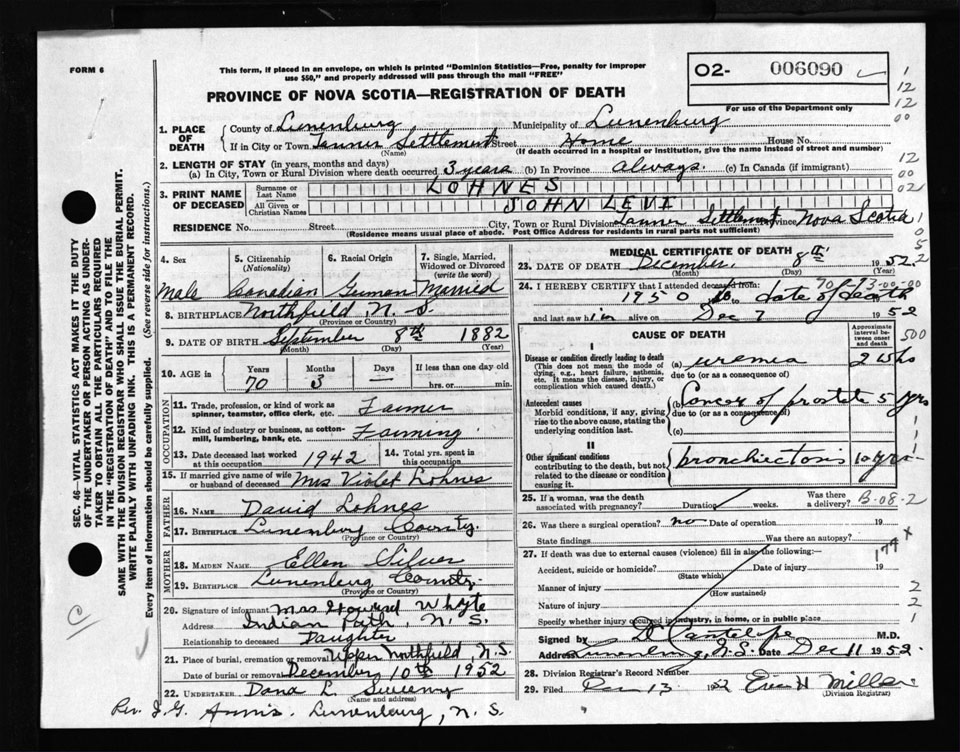 FORM 6
This form, if placed in an envelope, on which is printed "Dominion Statistics—Free, penalty for improper
use $50," and properly addressed will pass through the mail "FREE"
PROVINCE OF NOVA SCOTIA—REGISTRATION OF DEATH
02- 006090
For use of the Department only
1. PLACE OF DEATH County of Lunenburg Municipality of Lunenburg
If in City or Town Tanner Settlement Street Home House No.
(Name) (If death occurred in a hospital or institution, give the name instead of street and number)
2. LENGTH OF STAY (in years, months and days)
(a) In City, Town or Rural Division where death occurred 3 years (b) In Province always. (c) In Canada (if immigrant)
3. PRINT NAME OF DECEASED Surname or Last Name LOHNES
All Given or Christian Names JOHN LEVI
RESIDENCE No. Street City, Town or Rural Division Tanner Settlement Province Nova Scotia
(Residence means usual place of abode. Post Office Address for residents in rural parts not sufficient)
4. Sex 5. Citizenship (Nationality) 6. Racial Origin 7. Single, Married, Widowed or Divorced (write the word)
Male Canadian German Married
8. BIRTHPLACE Northfield N. S.
(Province or Country)
9. DATE OF BIRTH September 8th 1882
(Month) (Day) (Year)
10. AGE in Years Months Days If less than one day old
70 3 — hrs. or min.
OCCUPATION
11. Trade, profession, or kind of work as spinner, teamster, office clerk, etc. Farmer
12. Kind of industry or business, as cotton-mill, lumbering, bank, etc. Farming
13. Date deceased last worked at this occupation 1942 14. Total yrs. spent in this occupation
15. If married give name of wife or husband of deceased Mrs Violet Lohnes
FATHER
16. NAME David Lohnes
17. BIRTHPLACE Lunenburg County.
(Province or Country)
MOTHER
18. MAIDEN NAME Ellen Silver
19. BIRTHPLACE Lunenburg County
(Province or Country)
20. Signature of informant Mrs Howard Whyte
Address Indian Path, N. S.
Relationship to deceased Daughter
21. Place of burial, cremation or removal Upper Northfield, N. S.
Date of burial or removal December 10th 1952
22. UNDERTAKER Dana L. Sweeny
(Name and address)
Rev. Lunenburg, N. S.
MEDICAL CERTIFICATE OF DEATH
23. DATE OF DEATH December, 8th 1952
(Month) (Day) (Year)
24. I HEREBY CERTIFY that I attended deceased from:
1950 to date of death
and last saw him alive on Dec 7 1952
CAUSE OF DEATH
Approximate interval between onset and death
I
Disease or condition directly leading to death
(This does not mean the mode of dying, e.g., heart failure, asthenia, etc. It means the disease, injury, or complication which caused death.)
(a) uremia 2 wks
due to (or as a consequence of)
Antecedent causes
Morbid conditions, if any, giving rise to the above cause, stating the underlying condition last.
(b) Cancer of prostate 5 yrs
due to (or as a consequence of)
(c)
II
Other significant conditions
contributing to the death, but not related to the disease or condition causing it.
bronchiectasis 10 yrs
25. If a woman, was the death associated with pregnancy? Duration weeks. Was there a delivery? B-08-2
26. Was there a surgical operation? no Date of operation 19
State findings Was there an autopsy?
27. If death was due to external causes (violence) fill in also the following:
Accident, suicide or homicide? Date of injury 19
(State which)
Manner of injury
(How sustained)
Nature of injury
Specify whether injury occurred in industry, in home, or in public place
Signed by D Cantelope M.D.
Address Lunenburg, N.S. Date Dec 11 1952.
28. Division Registrar's Record Number
29. Filed Dec 13 1952 Miller
(Division Registrar)
SEC. 46—VITAL STATISTICS ACT MAKES IT THE DUTY
OF THE UNDERTAKER OR PERSON ACTING AS UNDER-
TAKER TO OBTAIN ALL THE PARTICULARS REQUIRED
IN THE "REGISTRATION OF DEATH" AND TO FILE THE
SAME WITH THE DIVISION REGISTRAR WHO SHALL ISSUE THE BURIAL PERMIT.
WRITE PLAINLY WITH UNFADING INK. THIS IS A PERMANENT RECORD.
Every item of information should be carefully supplied. (See reverse side for instructions.)